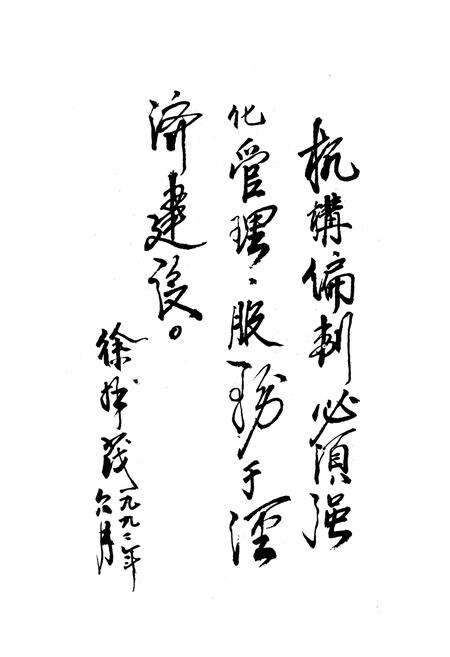 机構编制必须强
化管理、服務于经
济建设。
徐 一九九二年
六月